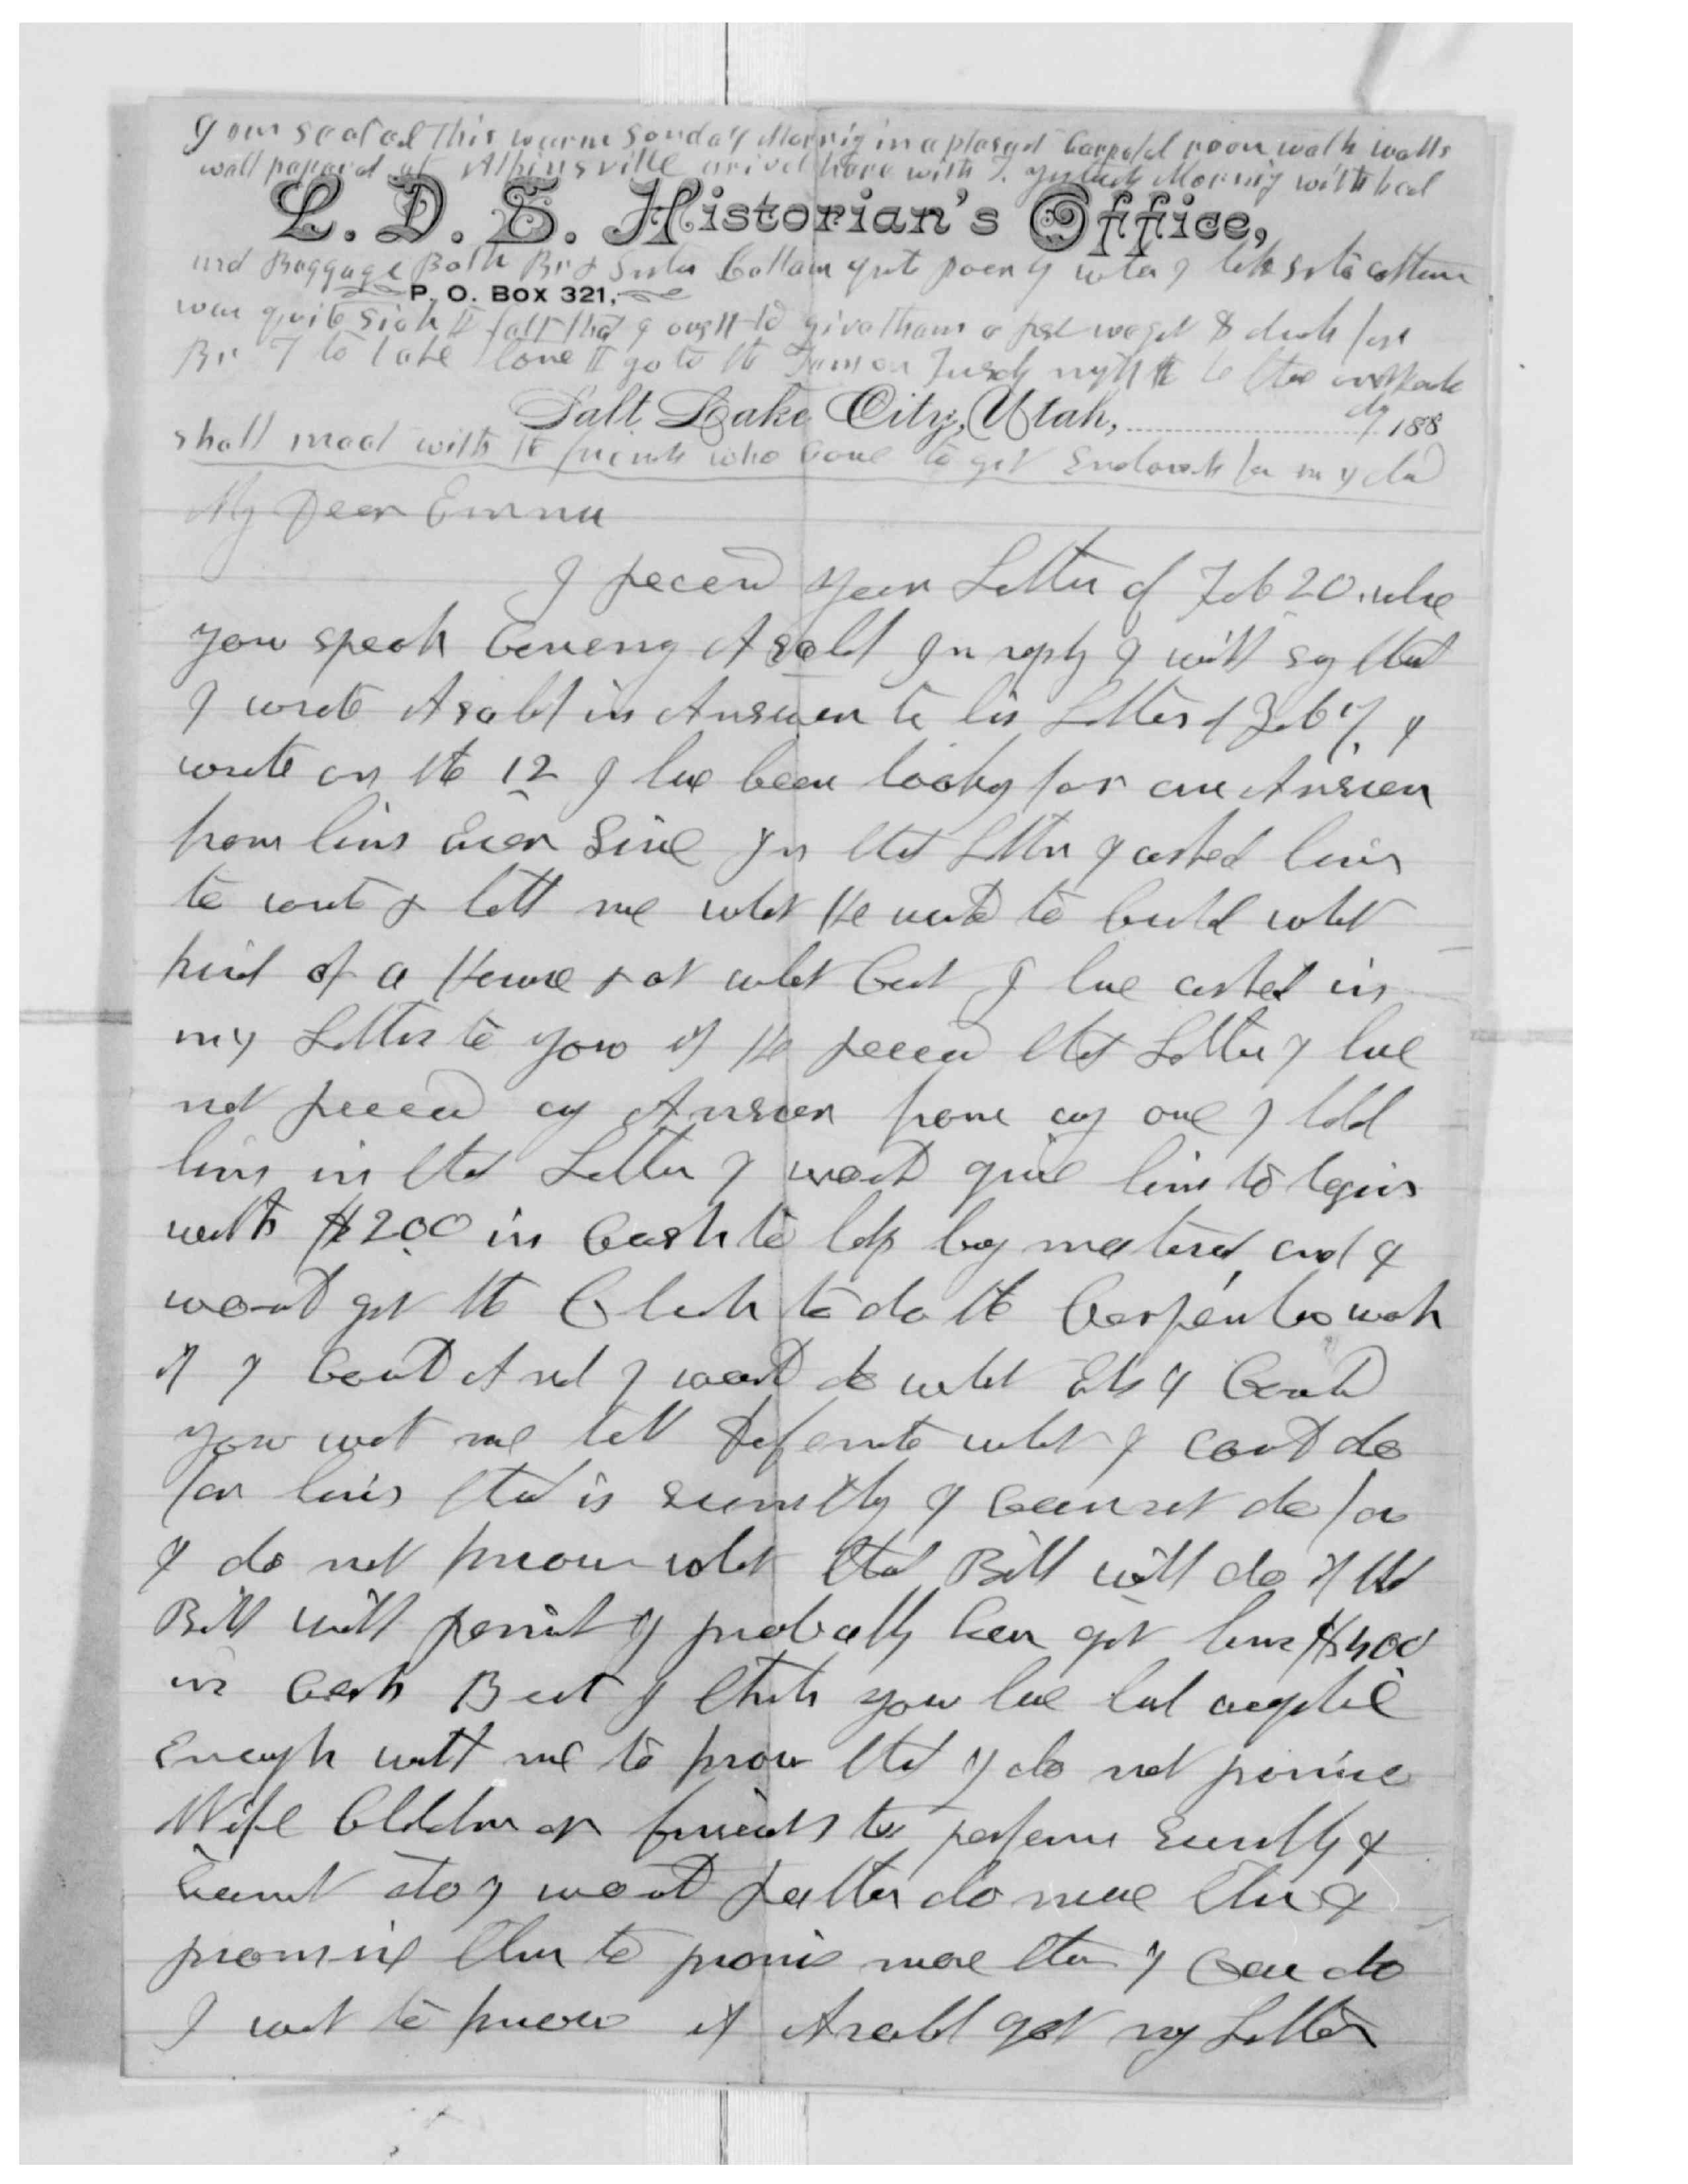 I am seated this warm Sonday Mornig in a plasant Carpeted room with walls
well papered at Atkinsville arived here with T. Morning with bed
L. D. S. Historian's Office,
and Baggage Both Br & Sister Cottam quite poorly Sister Cottam
P. O. Box 321,
was quite sick & felt that I ought to give them a rest
Br T to take time to go to the on night to
Salt Lake City, Utah, 188
shall meet with the friends who come to get Endowments for my dead
My Dear Emma
I received your Letter of Feb 20. where
you speak Concerning Asahel In reply I will say that
I wrote Asahel in Answer to his Letter of Feb 7, I
wrote on the 12 I have been looking for an Answer
from him Ever Since In that Letter I asked him
to write & lett me what He wanted to build what
kind of a House & at what Cost I have asked in
my Letter to you if He received that Letter I have
not received any Answer from any one I told
him in that Letter I would give him to begin
with $200 in Cash to help buy material, and I
would get the Clark to do the Carpenter work
if I Could And I would do what Els I Could
you want me tell definite what I could do
for him that is sumthing I Cannot do for
I do not know what that Bill will do if the
Bill will permit I probally Can get him $400
in Cash But I think you have had acquantance
Enough with me to know that I do not promise
Wife Children or friends to perform sumthing I
Cannot do I would rather do more than I
promise than to promis more than I Can do
I want to know if Asahel got my Letter